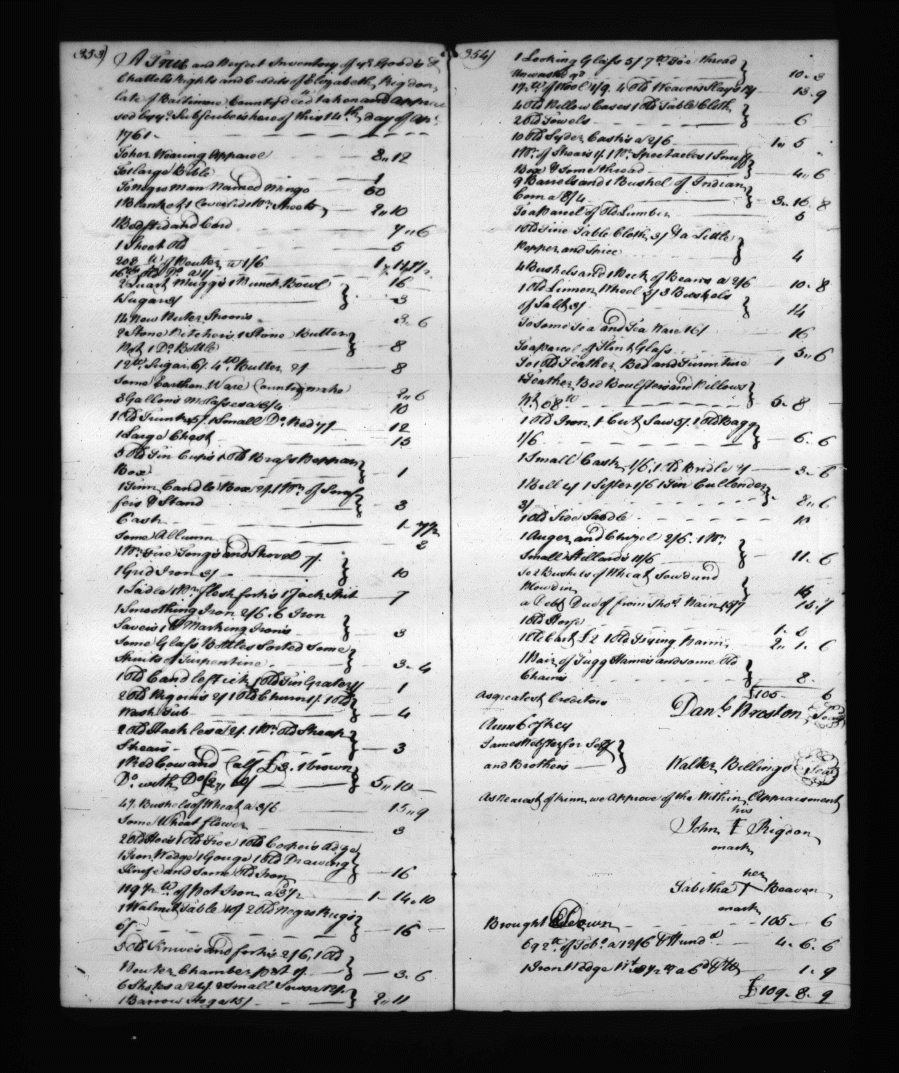 353
A True and Perfect Inventory of ye Goods &
Chattels Rights and Credits of Elizabeth Rigdon
late of Baltimore County deced taken and apprai
sed by ye Subscribers hereof this 14th day of
1761
To her Wearing Apparel 8 " 12
To 1 large Bible 1
To Negro Man Named Mingo 50
1 Blanket 1 Coverlid 1 Pr Sheets 2 " 10
1 Bedsted and Cord 7 " 6
1 Sheet Old 5
of Pewter a 1/6
16 Old Do a 1/ 16
2 Quart Muggs 1 Punch Bowl }
1 Sugar 3/ } 3
14 New Puter Spoons 3 " 6
2 Stone Pitchers 1 Stone Butter }
Pot 1 Do Bottle } 8
12 lb Sugar 6/ 4 lb Butter 2/ 8
Some Earthen Ware Country make 2 " 6
3 Gallons Molasses a 3/4 10
1 Old Trunk 5/ 1 Small Do Red 7/ 12
1 Large Chest 15
5 Old Tin Cups 1 Old Brass Pepper }
Box } 1
1 Tinn Candle Box 2/ 1 Pr of Snuf }
fers & Stand } 3
Cash 1 " 7 1/2
Some Allumn 2
1 Pr Fire Tongs and Shovel 7/ }
1 Grid Iron 3/ } 10
1 Ladle 1 Pr flesh forks 1 Jack Spit 7
1 Smoothing Iron 2/6. 6 Iron
1 Marking Irons 3
Some Glass Bottles Sorted Some }
Spirits of Turpentine } 3 " 4
1 Old Candlestick 1 Old Tin Grater 1
2 Old Piggins 2/ 1 Old Churn 1/ 1 Old }
Wash Tub } 4
2 Old Hackles a 2/. 1 Pr Old Sheep }
Shears } 3
1 Red Cow and Calf £3. 1 brown }
Do with Do } 5 " 10
49 Bushels of Wheat a 3/6 15 " 9
Some Wheat flower 3
2 Old Hoes 1 Old Froe 1 Old Coopers Adge }
1 Iron Wedge 1 Gouge 1 Old Drawing }
Knife and Some Old Iron } 16
of Pot Iron a 1 " 14 " 10
1 Walnut Table 10/ 2 Old Negro Rugs }
6/ } 16
5 Old Knives and forks 2/6, 1 Old }
Pewter Chamber pot 1/ } 3 " 6
2 Small Sows }
1 Barrow } 2 " 11
354
1 Looking Glass 5/ Shoe thread }
Unwashed } 10 " 3
Wool 1/9. 4 Old Weavers Slays 13 " 9
4 Old Pillow Cases 1 Old Table Cloth }
2 Old Towels } 6
10 Old Syder Casks a 2/6 1 " 5
1 Pr of Shears 1/. 1 Pr Spectacles 1 Snuff }
Box & Some thread } 4 " 6
9 Barrels and 1 Bushel of Indian }
Corn a 8/4 } 3 " 16 " 8
To a Parcel of Old Lumber 5
1 Old Fine Table Cloth 3/ & a Little }
Pepper and Spice } 4
4 Bushels and 1 Peck of Beans a 2/6 10 " 8
1 Old Linnen Wheel 5/ 3 Bushels }
of Salt 9/ } 14
To Some Tea and Tea Ware 16/ 16
To a parcel of Flint Glass 5 " 6
To 1 Old Feather Bed and Furniture 1
1 Feather Bed Boulsters and Pillows }
} 5 " 8
1 Old Iron, 1 Cut Saw 5/. 1 Old Bagg }
1/6 } 6 " 6
1 Small Cask 1/6, 1 Old Bridle 2/ 3 " 6
1 Bell 4/ 1 Sifter 1/6 1 Tin Cullender }
3/ } 8 " 6
1 Old Side Saddle
1 Auger and Chizel 2/6. 1 Pr }
Small Stillards 11/6 } 11 " 6
To 2 Bushels of Wheat Sowd and }
Plowd in }
a Debt Due from Thos 15 " 7
1 Old Horse
1 Old Cart £2 1 Old Frying Pann 2 " 1 " 6
1 Pair of Tugg Hames and some Old }
Chains } 8
£105 " 6
As greatest Creditors
Danl Preston Seal
James Webster for Self }
and Brothers }
Walter Billingo Seal
As Nearest of kinn we Approve of the Within Appraisement
his
John F Rigdon
mark
her
Tabitha T Beaven
mark
Brought Down 105 " 6
692 lb of Tobo a 12/6 P Hundd 4 " 6 " 6
1 Iron Wedge a 6d P lb 1 " 9
£109 " 8 " 9